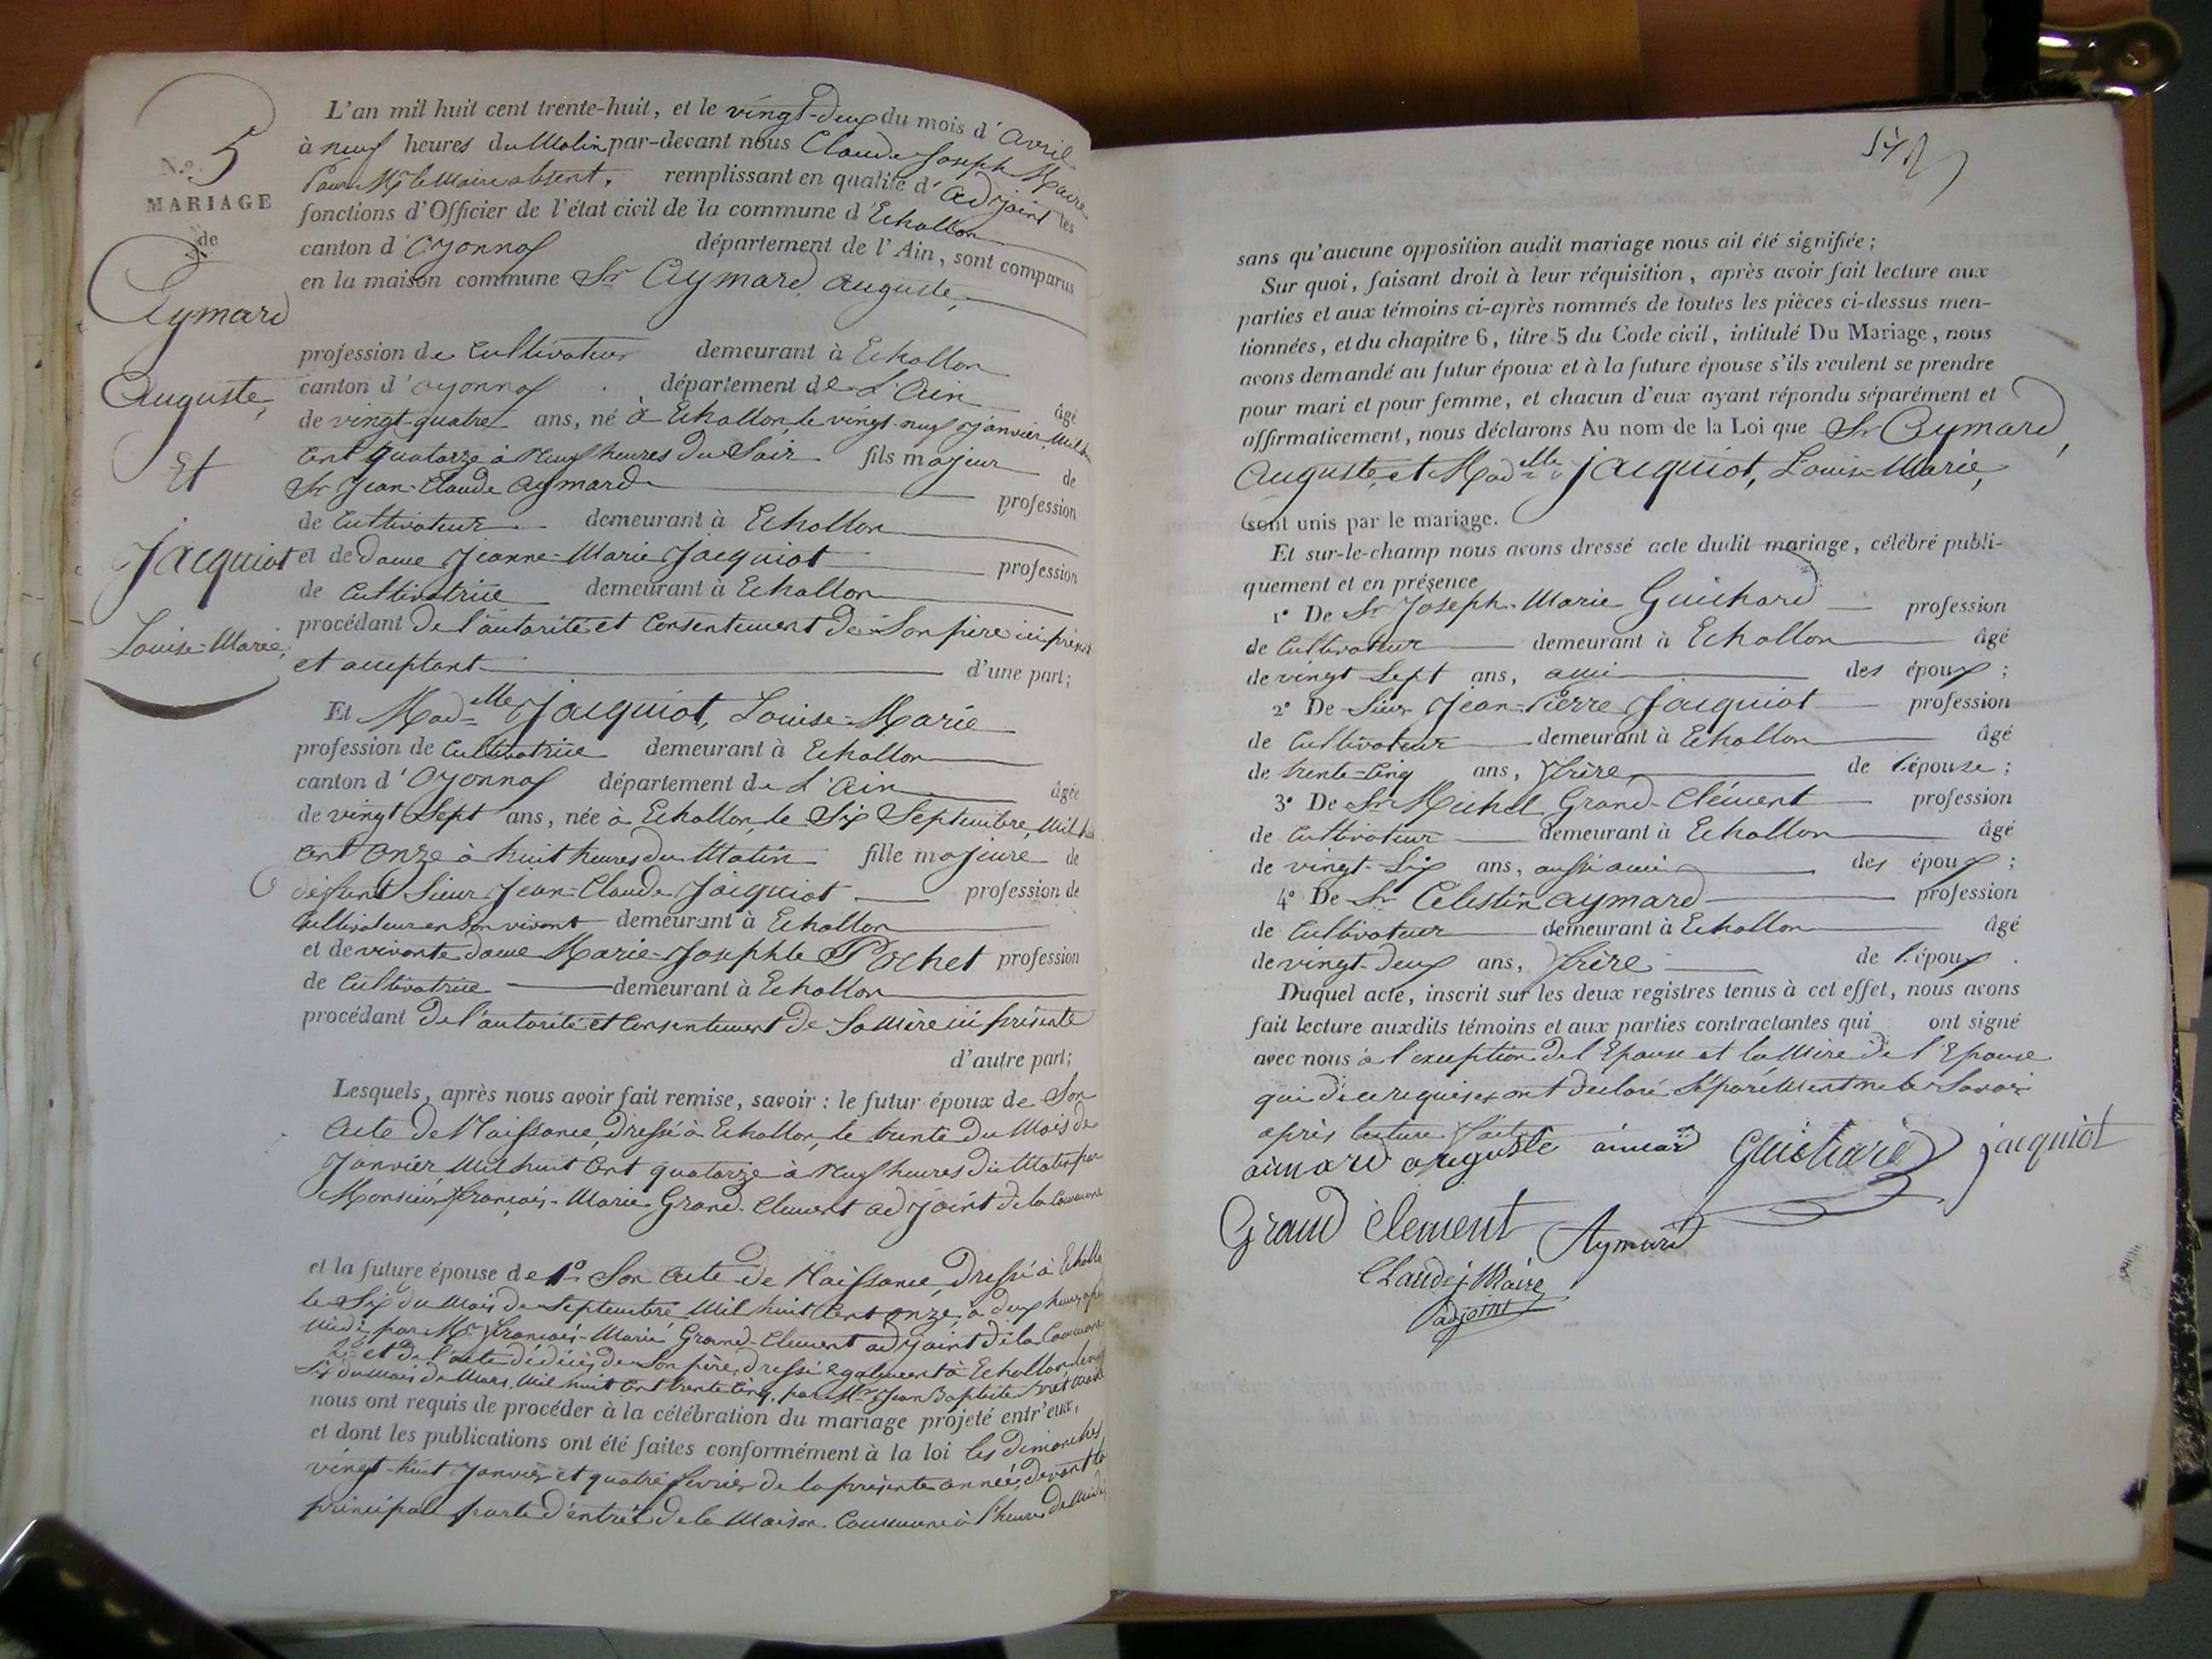 N.º 5
MARIAGE
de
Aymard
Auguste,
Et
Jacquiot
Louise-Marie,
L'an mil huit cent trente-huit, et le vingt-deux du mois d'Avril
à neuf heures du Matin par-devant nous Claude Joseph Maire
Pour Mr le Maire absent, remplissant en qualité d'adjoint les
fonctions d'Officier de l'état civil de la commune d'Echallon
canton d'Oyonnax département de l'Ain, sont comparus
en la maison commune Sr Aymard Auguste,
profession de Cultivateur demeurant à Echallon
canton d'oyonnax département de L'Ain âgé
de vingt-quatre ans, né à Echallon, le vingt-neuf Janvier, Mil h
Cent quatorze à Neuf heures Du Soir fils majeur de
Sr Jean-Claude Aymard profession
de Cultivateur demeurant à Echallon
et de Dame Jeanne-Marie Jacquiot profession
de Cultivatrice demeurant à Echallon
procédant De l'autorité et Consentement de Son père ici présent
et acceptant d'une part;
Et Madelle Jacquiot, Louise-Marie
profession de Cultivatrice demeurant à Echallon
canton d'Oyonnax département de L'Ain âgée
de vingt Sept ans, née à Echallon, le Six Septembre, Mil h
Cent Onze à huit heures du Matin fille majeure de
défunt Sieur Jean-Claude Jacquiot profession de
Cultivateur en Son vivant demeurant à Echallon
et de vivante dame Marie-Josephte Pochet profession
de Cultivatrice demeurant à Echallon
procédant De l'autorité et Consentement de Sa Mère ici présente
d'autre part;
Lesquels, après nous avoir fait remise, savoir : le futur époux de Son
Acte de Naissance, Dressé à Echallon, le trente Du Mois de
Janvier Mil huit Cent quatorze à Neuf heures Du Matin par
Monsieur françois-Marie Grand-Clement adjoint de la Commune
et la future épouse de 1º Son Acte de Naissance, Dressé à Echallon
le Six du Mois de Septembre Mil huit Cent onze, à deux heures après
midi, par Mr françois-Marie Grand-Clement adjoint de la Commune
2º et De l'acte de décès de Son père, dressé Egalement à Echallon, le
Six du Mois de Mars, Mil huit Cent trente Cinq, par Mr Jean Baptiste
nous ont requis de procéder à la célébration du mariage projeté entr'eux,
et dont les publications ont été faites conformément à la loi les dimanches
vingt-huit Janvier et quatre fevrier de la présente année, devant la
principale porte d'entrée de la Maison Commune à l'heure De Midi
sans qu'aucune opposition audit mariage nous ait été signifiée;
Sur quoi, faisant droit à leur réquisition, après avoir fait lecture aux
parties et aux témoins ci-après nommés de toutes les pièces ci-dessus men-
tionnées, et du chapitre 6, titre 5 du Code civil, intitulé Du Mariage, nous
avons demandé au futur époux et à la future épouse s'ils veulent se prendre
pour mari et pour femme, et chacun d'eux ayant répondu séparément et
affirmativement, nous déclarons Au nom de la Loi que Sr Aymard,
Auguste, et Madelle Jacquiot, Louise-Marie,
sont unis par le mariage.
Et sur-le-champ nous avons dressé acte dudit mariage, célébré publi-
quement et en présence
1º De Sr Joseph-Marie Guichard profession
de Cultivateur demeurant à Echallon âgé
de vingt Sept ans, ami des époux;
2º De Sieur Jean-Pierre Jacquiot profession
de Cultivateur demeurant à Echallon âgé
de trente-Cinq ans, frère de l'épouse;
3º De Sr Michel Grand-Clément profession
de Cultivateur demeurant à Echallon âgé
de vingt-Six ans, aussi ami des époux;
4º De Sr Celestin Aymard profession
de Cultivateur demeurant à Echallon âgé
de vingt-Deux ans, frère de l'époux.
Duquel acte, inscrit sur les deux registres tenus à cet effet, nous avons
fait lecture auxdits témoins et aux parties contractantes qui ont signé
avec nous à l'exception de l'Epouse et la Mère de l'Epouse
qui De ce requises ont déclaré Séparément ne le Savoir
après lecture faite
aimard auguste aimar Guichard jacquiot
Grand Clement Aymard
Claude j Maire
adjoint